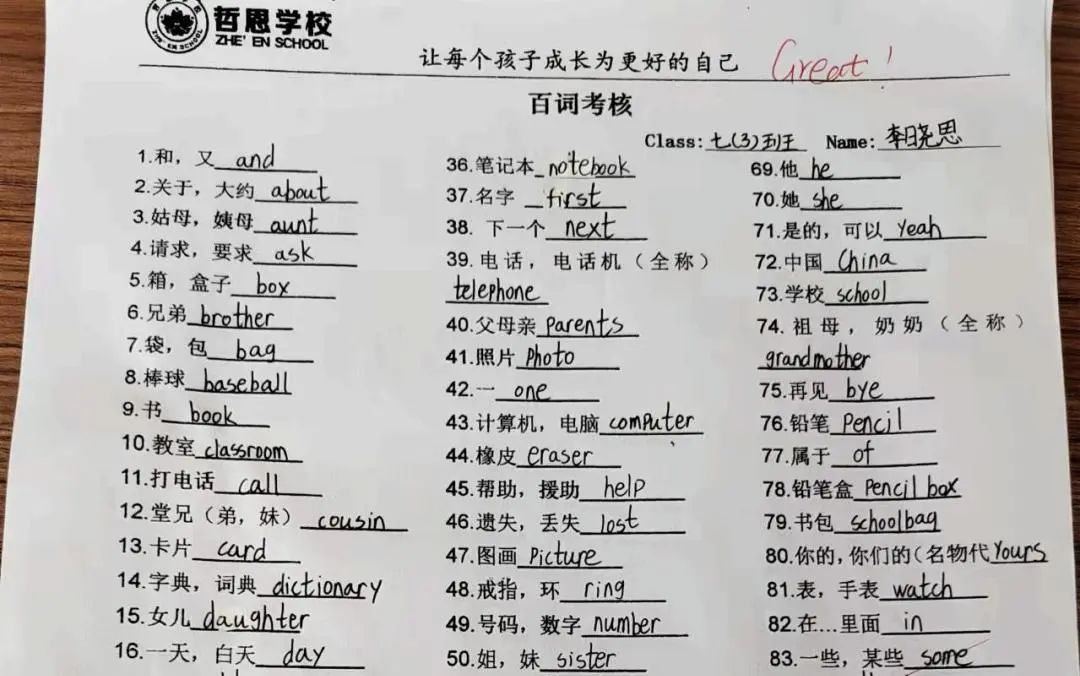 哲恩学校
ZHE' EN SCHOOL
让每个孩子成长为更好的自己 Great!
百词考核
Class: 七(3)班 Name: 李晓思
1.和，又 and
2.关于，大约 about
3.姑母，姨母 aunt
4.请求，要求 ask
5.箱，盒子 box
6.兄弟 brother
7.袋，包 bag
8.棒球 baseball
9.书 book
10.教室 classroom
11.打电话 call
12.堂兄（弟，妹） cousin
13.卡片 card
14.字典，词典 dictionary
15.女儿 daughter
16.一天，白天 day
36.笔记本 notebook
37.名字 first
38. 下一个 next
39.电话，电话机（全称）
telephone
40.父母亲 parents
41.照片 photo
42.一 one
43.计算机，电脑 computer
44.橡皮 eraser
45.帮助，援助 help
46.遗失，丢失 lost
47.图画 picture
48.戒指，环 ring
49.号码，数字 number
50.姐，妹 sister
69.他 he
70.她 she
71.是的，可以 yeah
72.中国 China
73.学校 school
74.祖母，奶奶（全称）
grandmother
75.再见 bye
76.铅笔 pencil
77.属于 of
78.铅笔盒 pencil box
79.书包 schoolbag
80.你的，你们的（名物代 yours
81.表，手表 watch
82.在…里面 in
83.一些，某些 some